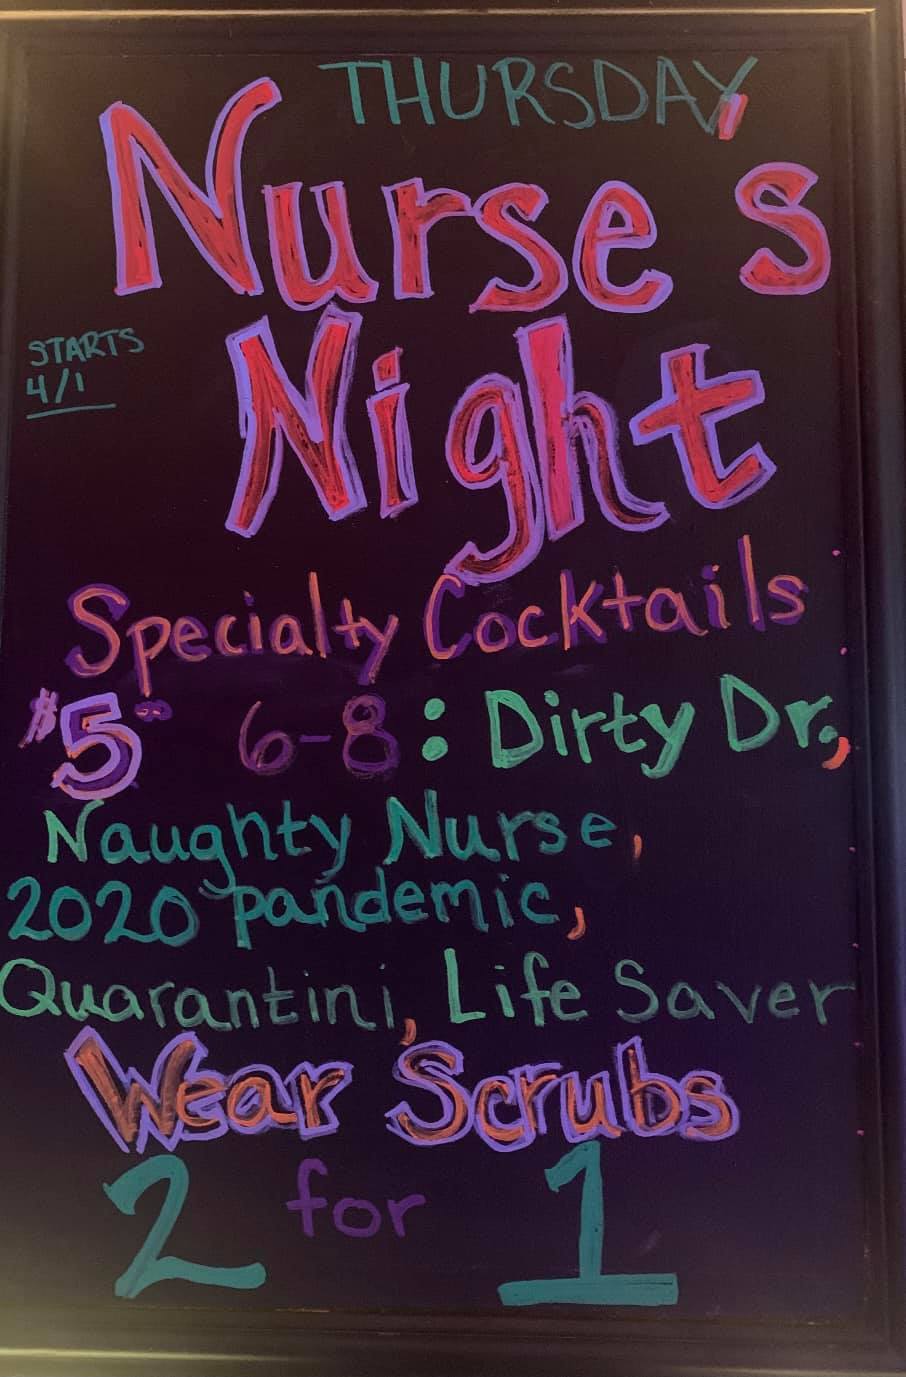 THURSDAY
Nurse's
STARTS
4/1
Night
Specialty Cocktails
$5⁰⁰ 6-8: Dirty Dr.,
Naughty Nurse,
2020 pandemic,
Quarantini, Life Saver
Wear Scrubs
2 for 1